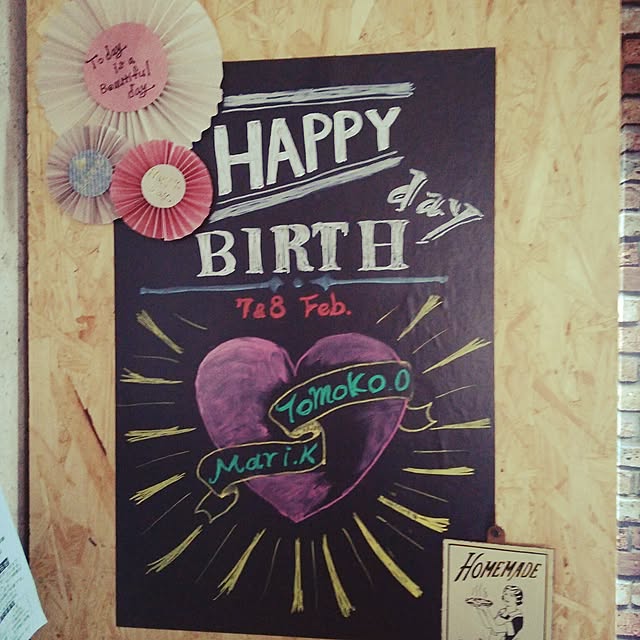 Today
is a
Beautiful
day
HAPPY
BIRTH day
7&8 Feb.
TOMOKO.O
Mari.K
HOMEMADE